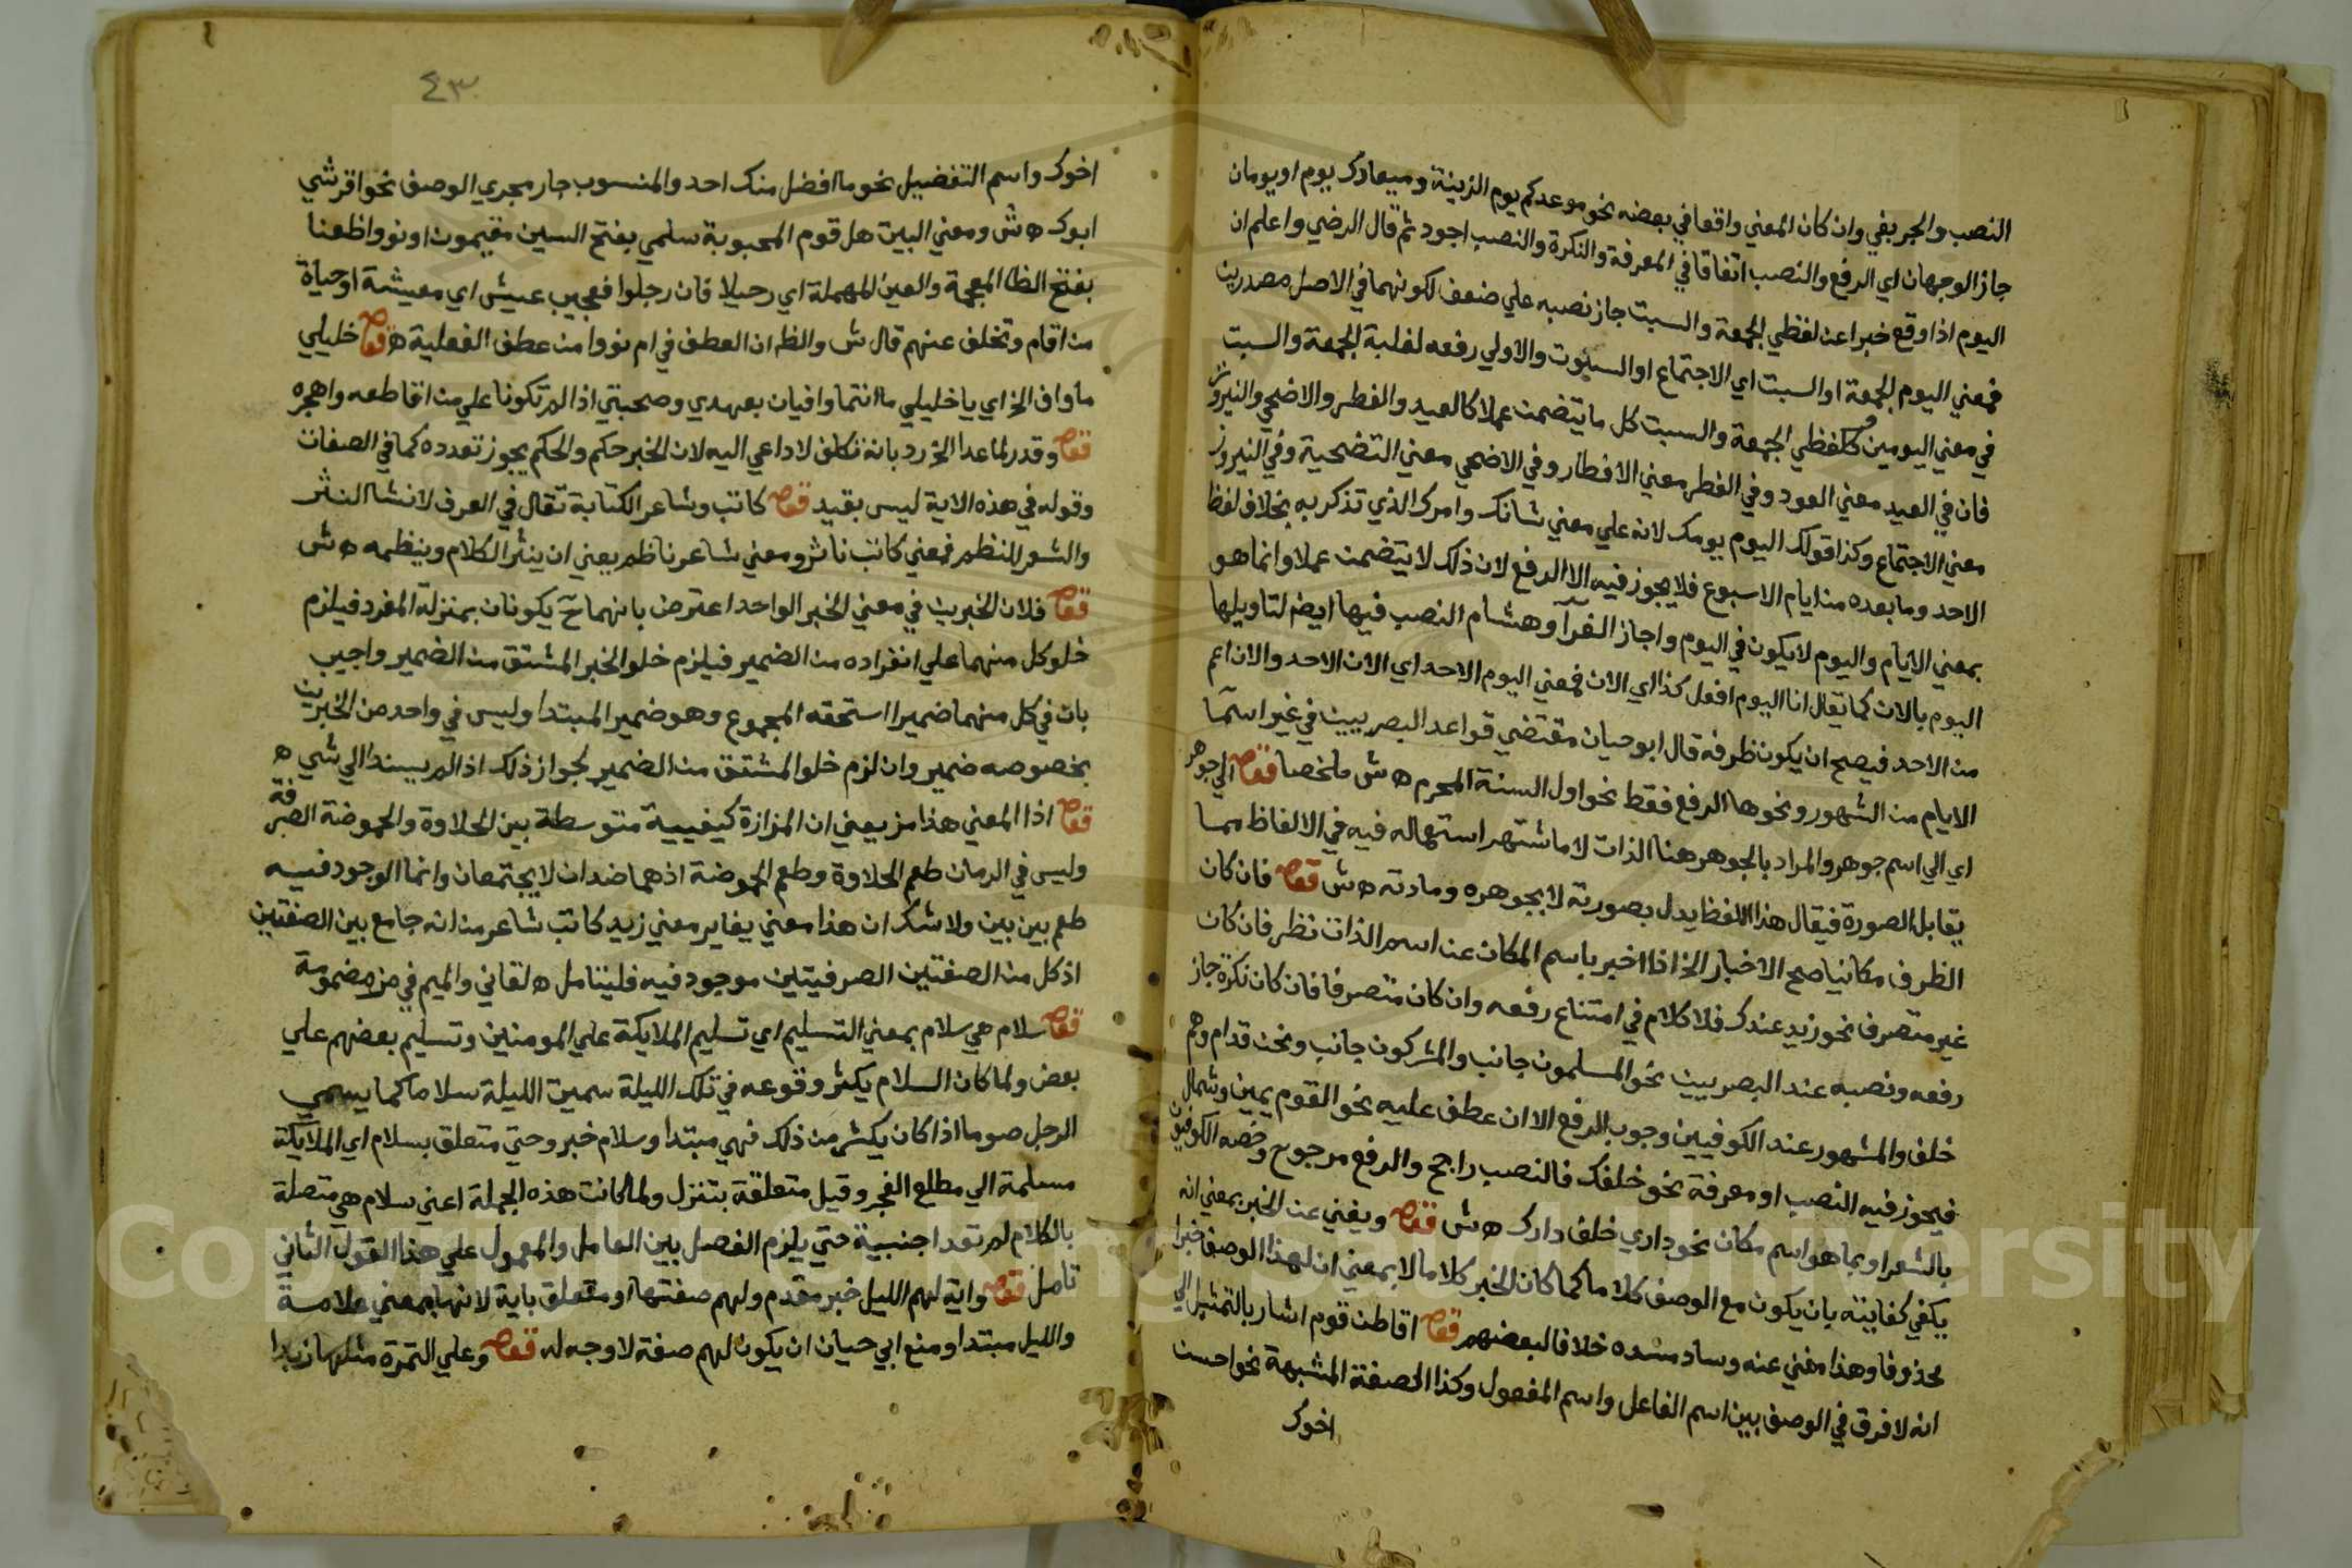 النصب والجر بفي وان كان المعني واقعا في بعضه نحو موعدكم يوم الزينة وميعادك يوم او يومان
جاز الوجهان اي الرفع والنصب اتفاقا في المعرفة والنكرة والنصب اجود ثم قال الرضي واعلم ان
اليوم اذا وقع خبرا عن لفظي الجمعة والسبت جاز نصبه علي ضعف لكونهما في الاصل مصدرين
فمعني اليوم الجمعة او السبت اي الاجتماع او السبوت والاولي رفعه لغلبة الجمعة والسبت
في معني اليومين وكلفظي الجمعة والسبت كل ما يتضمن عملا كالعيد والفطر والاضحي والنيروز
فان في العيد معني العود وفي الفطر معني الافطار وفي الاضحي معني التضحية وفي النيروز
معني الاجتماع وكذا قولك اليوم يومك لانه علي معني شانك وامرك الذي تذكر به بخلاف لفظ
الاحد وما بعده من ايام الاسبوع فلا يجوز فيه الا الرفع لان ذلك لا يتضمن عملا وانما هو
بمعني الايام واليوم لا يكون في اليوم واجاز الفرآ وهشام النصب فيها ايض لتاويلها
اليوم بالان كما يقال انا اليوم افعل كذا اي الان فمعني اليوم الاحد اي الان الاحد والان اعم
من الاحد فيصح ان يكون ظرفه قال ابو حيان مقتضي قواعد البصريين في غير اسما
الايام من الشهور ونحوها الرفع فقط نحو اول السنة المحرم ه ش ملخصا قوله الي جوهر
اي الي اسم جوهر والمراد بالجوهر هنا الذات لا ما اشتهر استعماله فيه في الالفاظ مما
يقابل الصورة فيقال هذا اللفظ يدل بصورته لا بجوهره ومادته ه ش قوله فان كان
الظرف مكانيا صح الاخبار الخ اذا اخبر باسم المكان عن اسم الذات نظر فان كان
غير متصرف نحو زيد عندك فلا كلام في امتناع رفعه وان كان متصرفا فان كان نكرة جاز
رفعه ونصبه عند البصريين نحو المسلمون جانب والمشركون جانب ونحن قدام وهم
خلف والمشهور عند الكوفيين وجوب الرفع الا ان عطف عليه نحو القوم يمين وشمال
فيجوز فيه النصب او معرفة نحو خلفك فالنصب راجح والرفع مرجوح وخصه الكوفيون
بالشعر او بما هو اسم مكان نحو داري خلف دارك ه ش قوله ويغني عن الخبر بمعني انه
يكفي كفايته بان يكون مع الوصف كلاما كما كان الخبر كلاما لا بمعني ان لهذا الوصف خبرا
محذوفا وهذا مغني عنه وساد مسده خلافا لبعضهم قوله اقاطن قوم اشار بالتمثيل الي
انه لا فرق في الوصف بين اسم الفاعل واسم المفعول وكذا الصفة المشبهة نحو احسن
اخوك
٤٣
اخوك واسم التفضيل نحو ما افضل منك احد والمنسوب جار مجري الوصف نحو اقرشي
ابوك ه ش ومعني البيت هل قوم المحبوبة سلمي بفتح السين مقيمون او نووا ظعنا
بفتح الظا المعجمة والعين المهملة اي رحيلا فان رحلوا فعجيب عيش اي معيشة او حياة
من اقام وتخلف عنهم قال ش والظ ان العطف في ام نووا من عطف الفعلية ه قوله خليلي
ما واف الخ اي يا خليلي ما انتما وافيان بعهدي وصحبتي اذا لم تكونا علي من اقاطعه واهجره
قوله وقدر لما عدا الخ رد بانه تكلف لا داعي اليه لان الخبر حكم والحكم يجوز تعدده كما في الصفات
وقوله في هذه الاية ليس بقيد قوله كاتب وشاعر الكتابة تقال في العرف لانشا النثر
والشعر للنظم فمعني كاتب ناثر ومعني شاعر ناظم يعني ان ينثر الكلام وينظمه ه ش
قوله فلان الخبرين في معني الخبر الواحد اعترض بانهما ح يكونان بمنزلة المفرد فيلزم
خلو كل منهما علي انفراده من الضمير فيلزم خلو الخبر المشتق من الضمير واجيب
بان في كل منهما ضميرا استحقه المجموع وهو ضمير المبتدا وليس في واحد من الخبرين
بخصوصه ضمير وان لزم خلو المشتق من الضمير لجواز ذلك اذا لم يسند الي شي ه
قوله اذا المعني هذا مز يعني ان المزازة كيفيية متوسطة بين الحلاوة والحموضة الصرفة
وليس في الرمان طعم الحلاوة وطعم الحموضة اذ هما ضدان لا يجتمعان وانما الوجود فيه
طعم بين بين ولا شك ان هذا معني يغاير معني زيد كاتب شاعر من انه جامع بين الصفتين
اذ كل من الصفتين الصرفيتين موجود فيه فليتامل ه لقاني والميم في مز مضمومة
قوله سلام هي سلام بمعني التسليم اي تسليم الملايكة علي المومنين وتسليم بعضهم علي
بعض ولما كان السلام يكثر وقوعه في تلك الليلة سميت الليلة سلاما كما يسمي
الرجل صوما اذا كان يكثر من ذلك فهي مبتدا وسلام خبر وحتي متعلق بسلام اي الملايكة
مسلمة الي مطلع الفجر وقيل متعلقة بتنزل ولما كانت هذه الجملة اعني سلام هي متصلة
بالكلام لم تعد اجنبية حتي يلزم الفصل بين العامل والمعمول علي هذا القول الثاني
تامل قوله واية لهم الليل خبر مقدم ولهم صفتها او متعلق باية لانها بمعني علامة
والليل مبتدا ومنع ابي حيان ان يكون لهم صفة لا وجه له قوله وعلي التمرة مثلها زبدا
Copyright © King Saud University